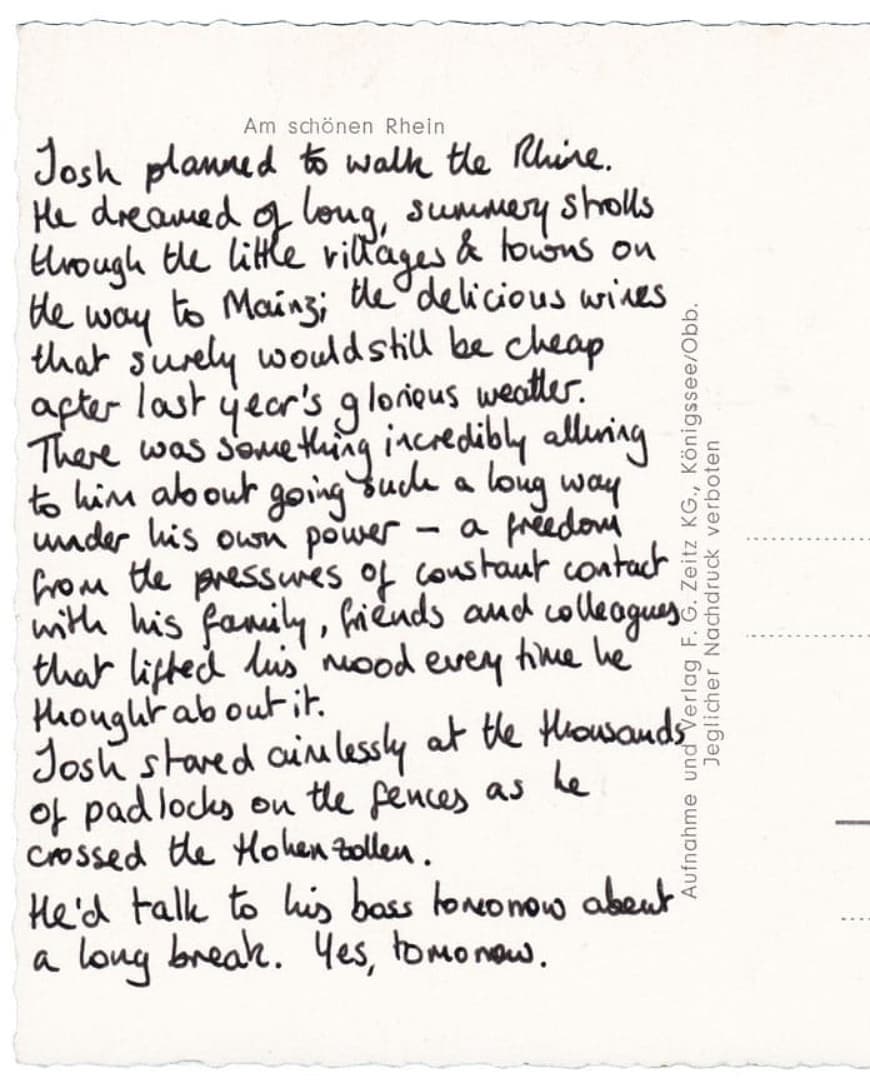 Am schönen Rhein
Josh planned to walk the Rhine.
He dreamed of long, summery strolls
through the little villages & towns on
the way to Mainz; the delicious wines
that surely would still be cheap
after last year's glorious weather.
There was something incredibly alluring
to him about going such a long way
under his own power – a freedom
from the pressures of constant contact
with his family, friends and colleagues
that lifted his mood every time he
thought about it.
Josh stared aimlessly at the thousands
of padlocks on the fences as he
crossed the Hohenzollen.
He'd talk to his boss tomorrow about
a long break. Yes, tomorrow.
Aufnahme und Verlag F. G. Zeitz KG., Königssee/Obb.
Jeglicher Nachdruck verboten